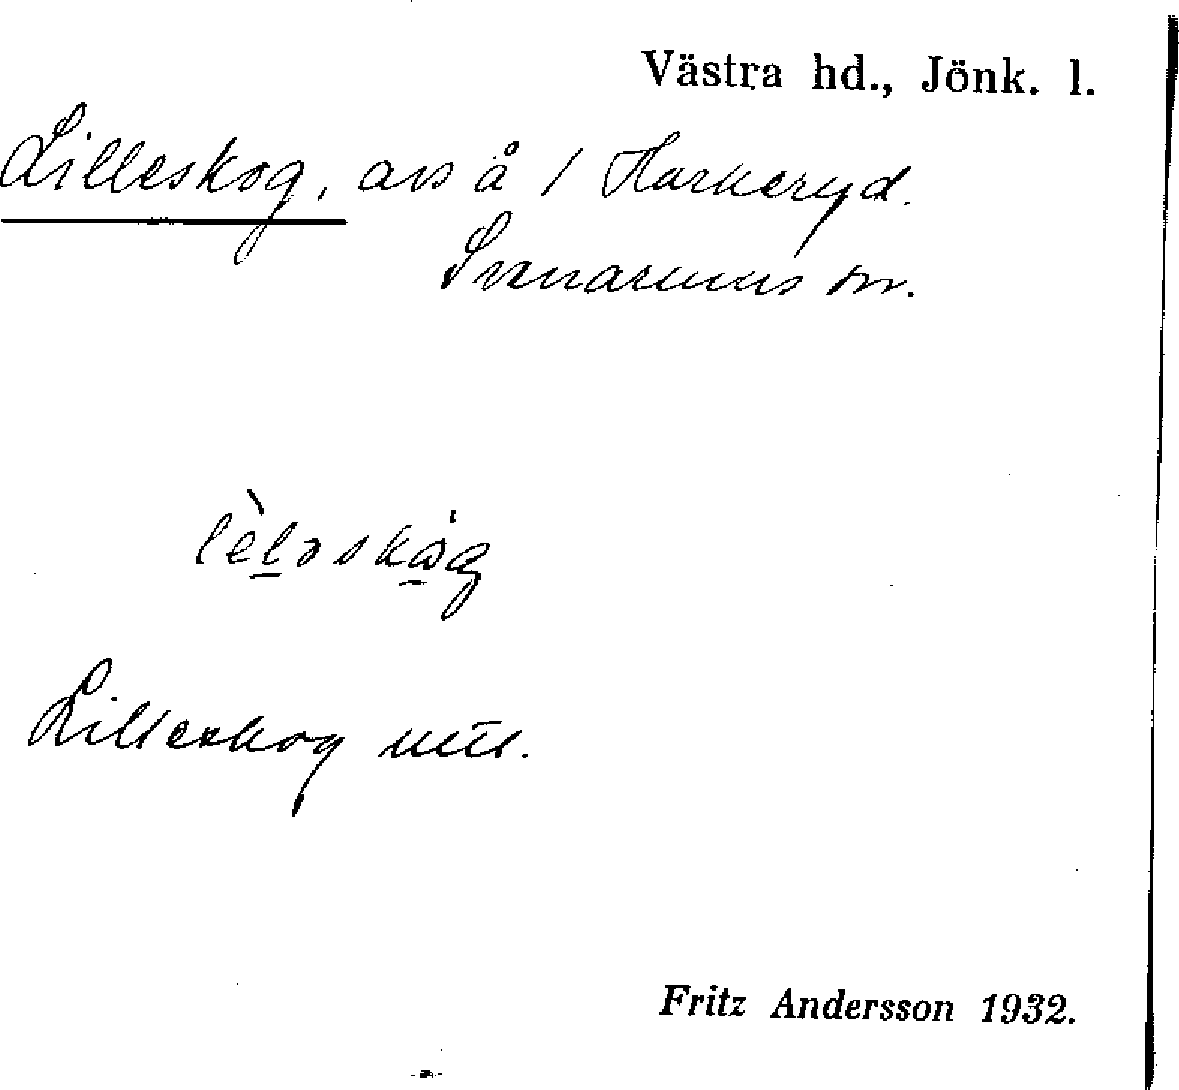 Västra hd., Jönk. l.
Lilleskog, avs å 1 Harkeryd.
Svenarums sn.
Lilleskog
Fritz Andersson 1932.